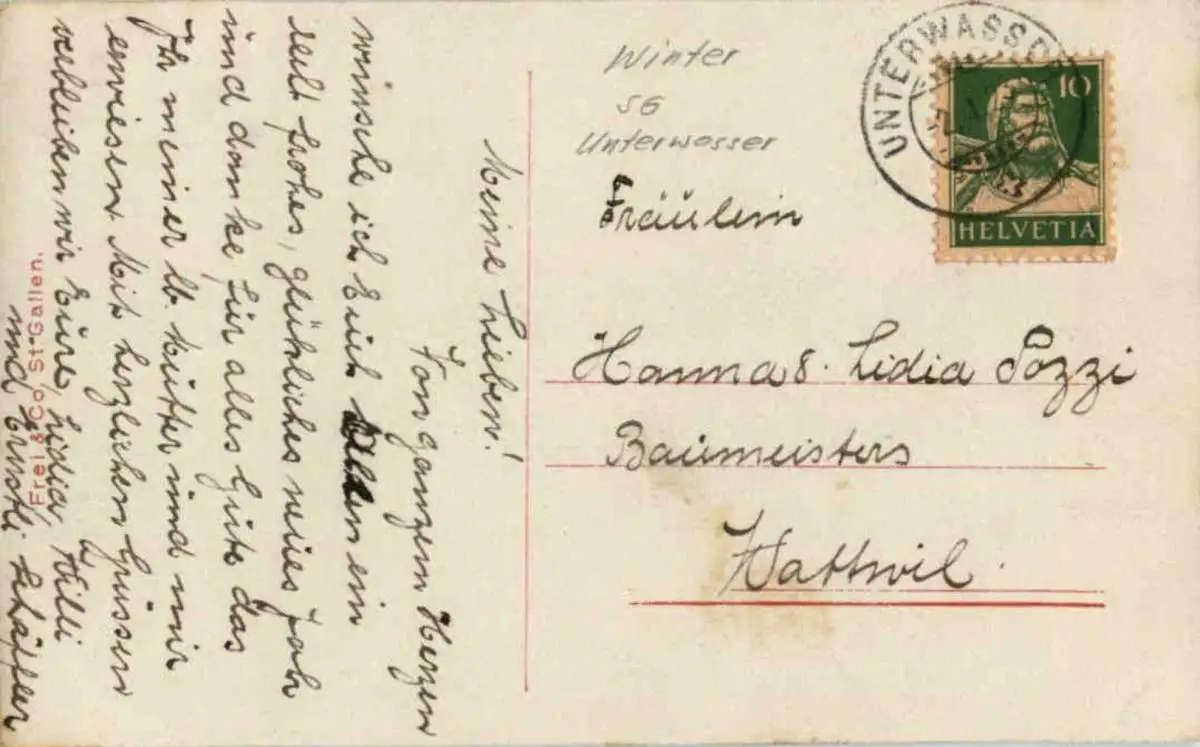 Winter
SG
Unterwasser
UNTERWASSER
10
HELVETIA
Fräulein
Hanna & Lidia Pozzi
Baumeisters
Wattwil.
Meine Lieben!
Von ganzem Herzen
wünsche ich Euch Allen ein
recht frohes, glückliches neues Jahr
und danke für alles Gute das
Ihr meiner lb. Mutter und mir
erwiesen. Mit herzlichen Grüssen
verbleiben wir Eure Lidia, Willi
und
Frei & Co. St. Gallen.